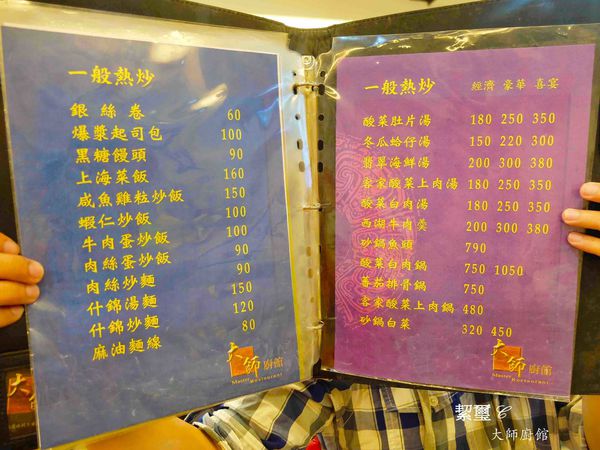 一般熱炒
銀絲卷 60
爆漿起司包 100
黑糖饅頭 90
上海菜飯 160
咸魚雞粒炒飯 150
蝦仁炒飯 100
牛肉蛋炒飯 100
肉絲蛋炒飯 90
肉絲炒麵 90
什錦湯麵 150
什錦炒麵 120
麻油麵線 80
大師廚館
Master Restaurant
一般熱炒 經濟 豪華 喜宴
酸菜肚片湯 180 250 350
冬瓜蛤仔湯 150 220 300
翡翠海鮮湯 200 300 380
客家酸菜上肉湯 180 250 350
酸菜白肉湯 180 250 350
西湖牛肉羹 200 300 380
砂鍋魚頭 790
酸菜白肉鍋 750 1050
番茄排骨鍋 750
客家酸菜上肉鍋 480
砂鍋白菜 320 450
大師廚館
Master Restaurant
大師
絜璽C
大師廚館